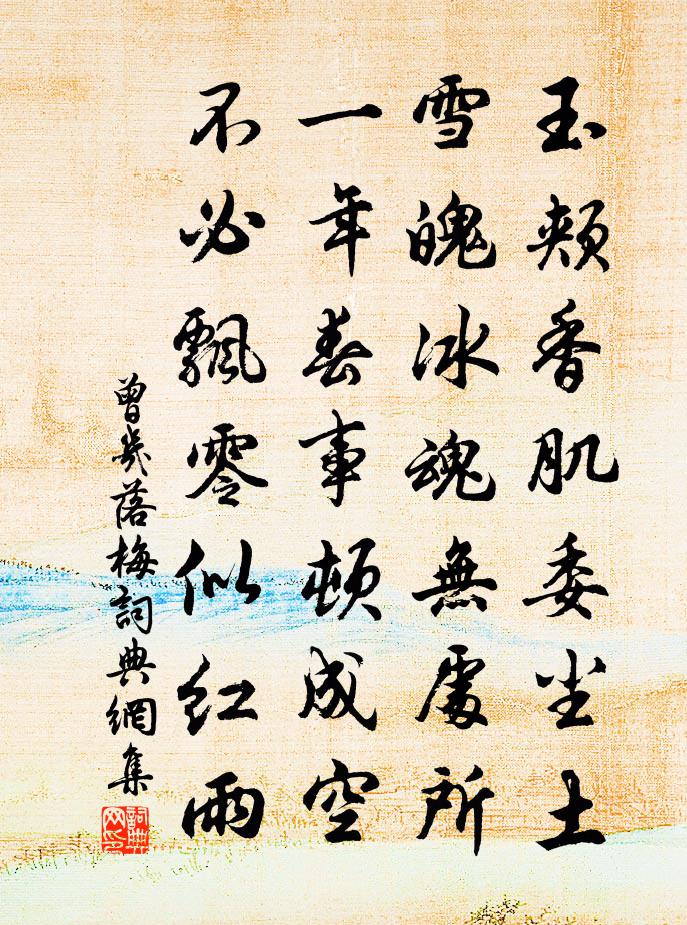 玉頰香肌委尘土
雪魄冰魂無處所
一年春事頓成空
不必飄零似紅雨
曾幾落梅詞典網集
詞典網印